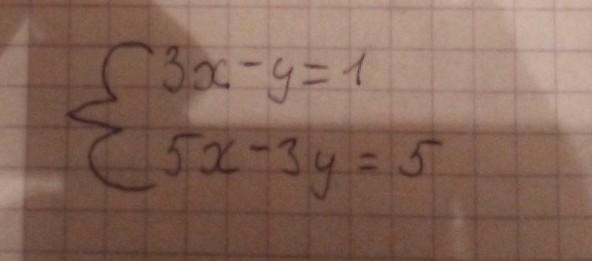 3x - y = 1
5x - 3y = 5